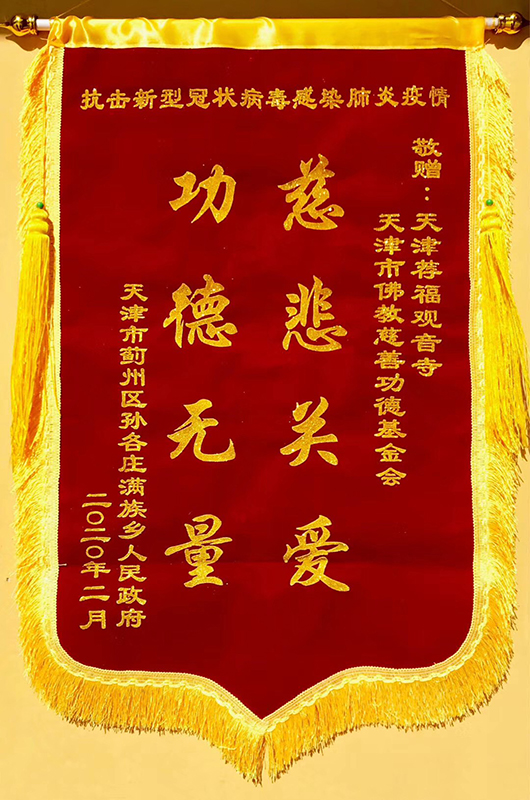 抗击新型冠状病毒感染肺炎疫情
敬赠：天津荐福观音寺
天津市佛教慈善功德基金会
慈悲关爱
功德无量
天津市蓟州区孙各庄满族乡人民政府
二〇二〇年二月